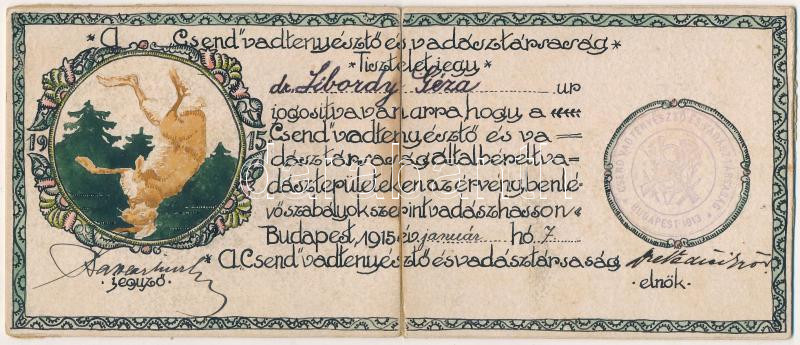 * A „Csend” vadtenyésztő és vadásztársaság *
* Tiszteletjegy *
dr. Libordy Géza úr
jogosítva van arra, hogy, a «««
„Csend” vadtenyésztő és va=
dásztársaság által bérelt va=
dászterületeken az érvényben lé=
vő szabályok szerint vadászhasson «
Budapest, 1915 év január hó 7.
* A „Csend” vadtenyésztő és vadásztársaság
jegyző.
elnök.
1915
CSEND VADTENYÉSZTŐ ÉS VADÁSZTÁRSASÁG
BUDAPEST 1913
darabanth